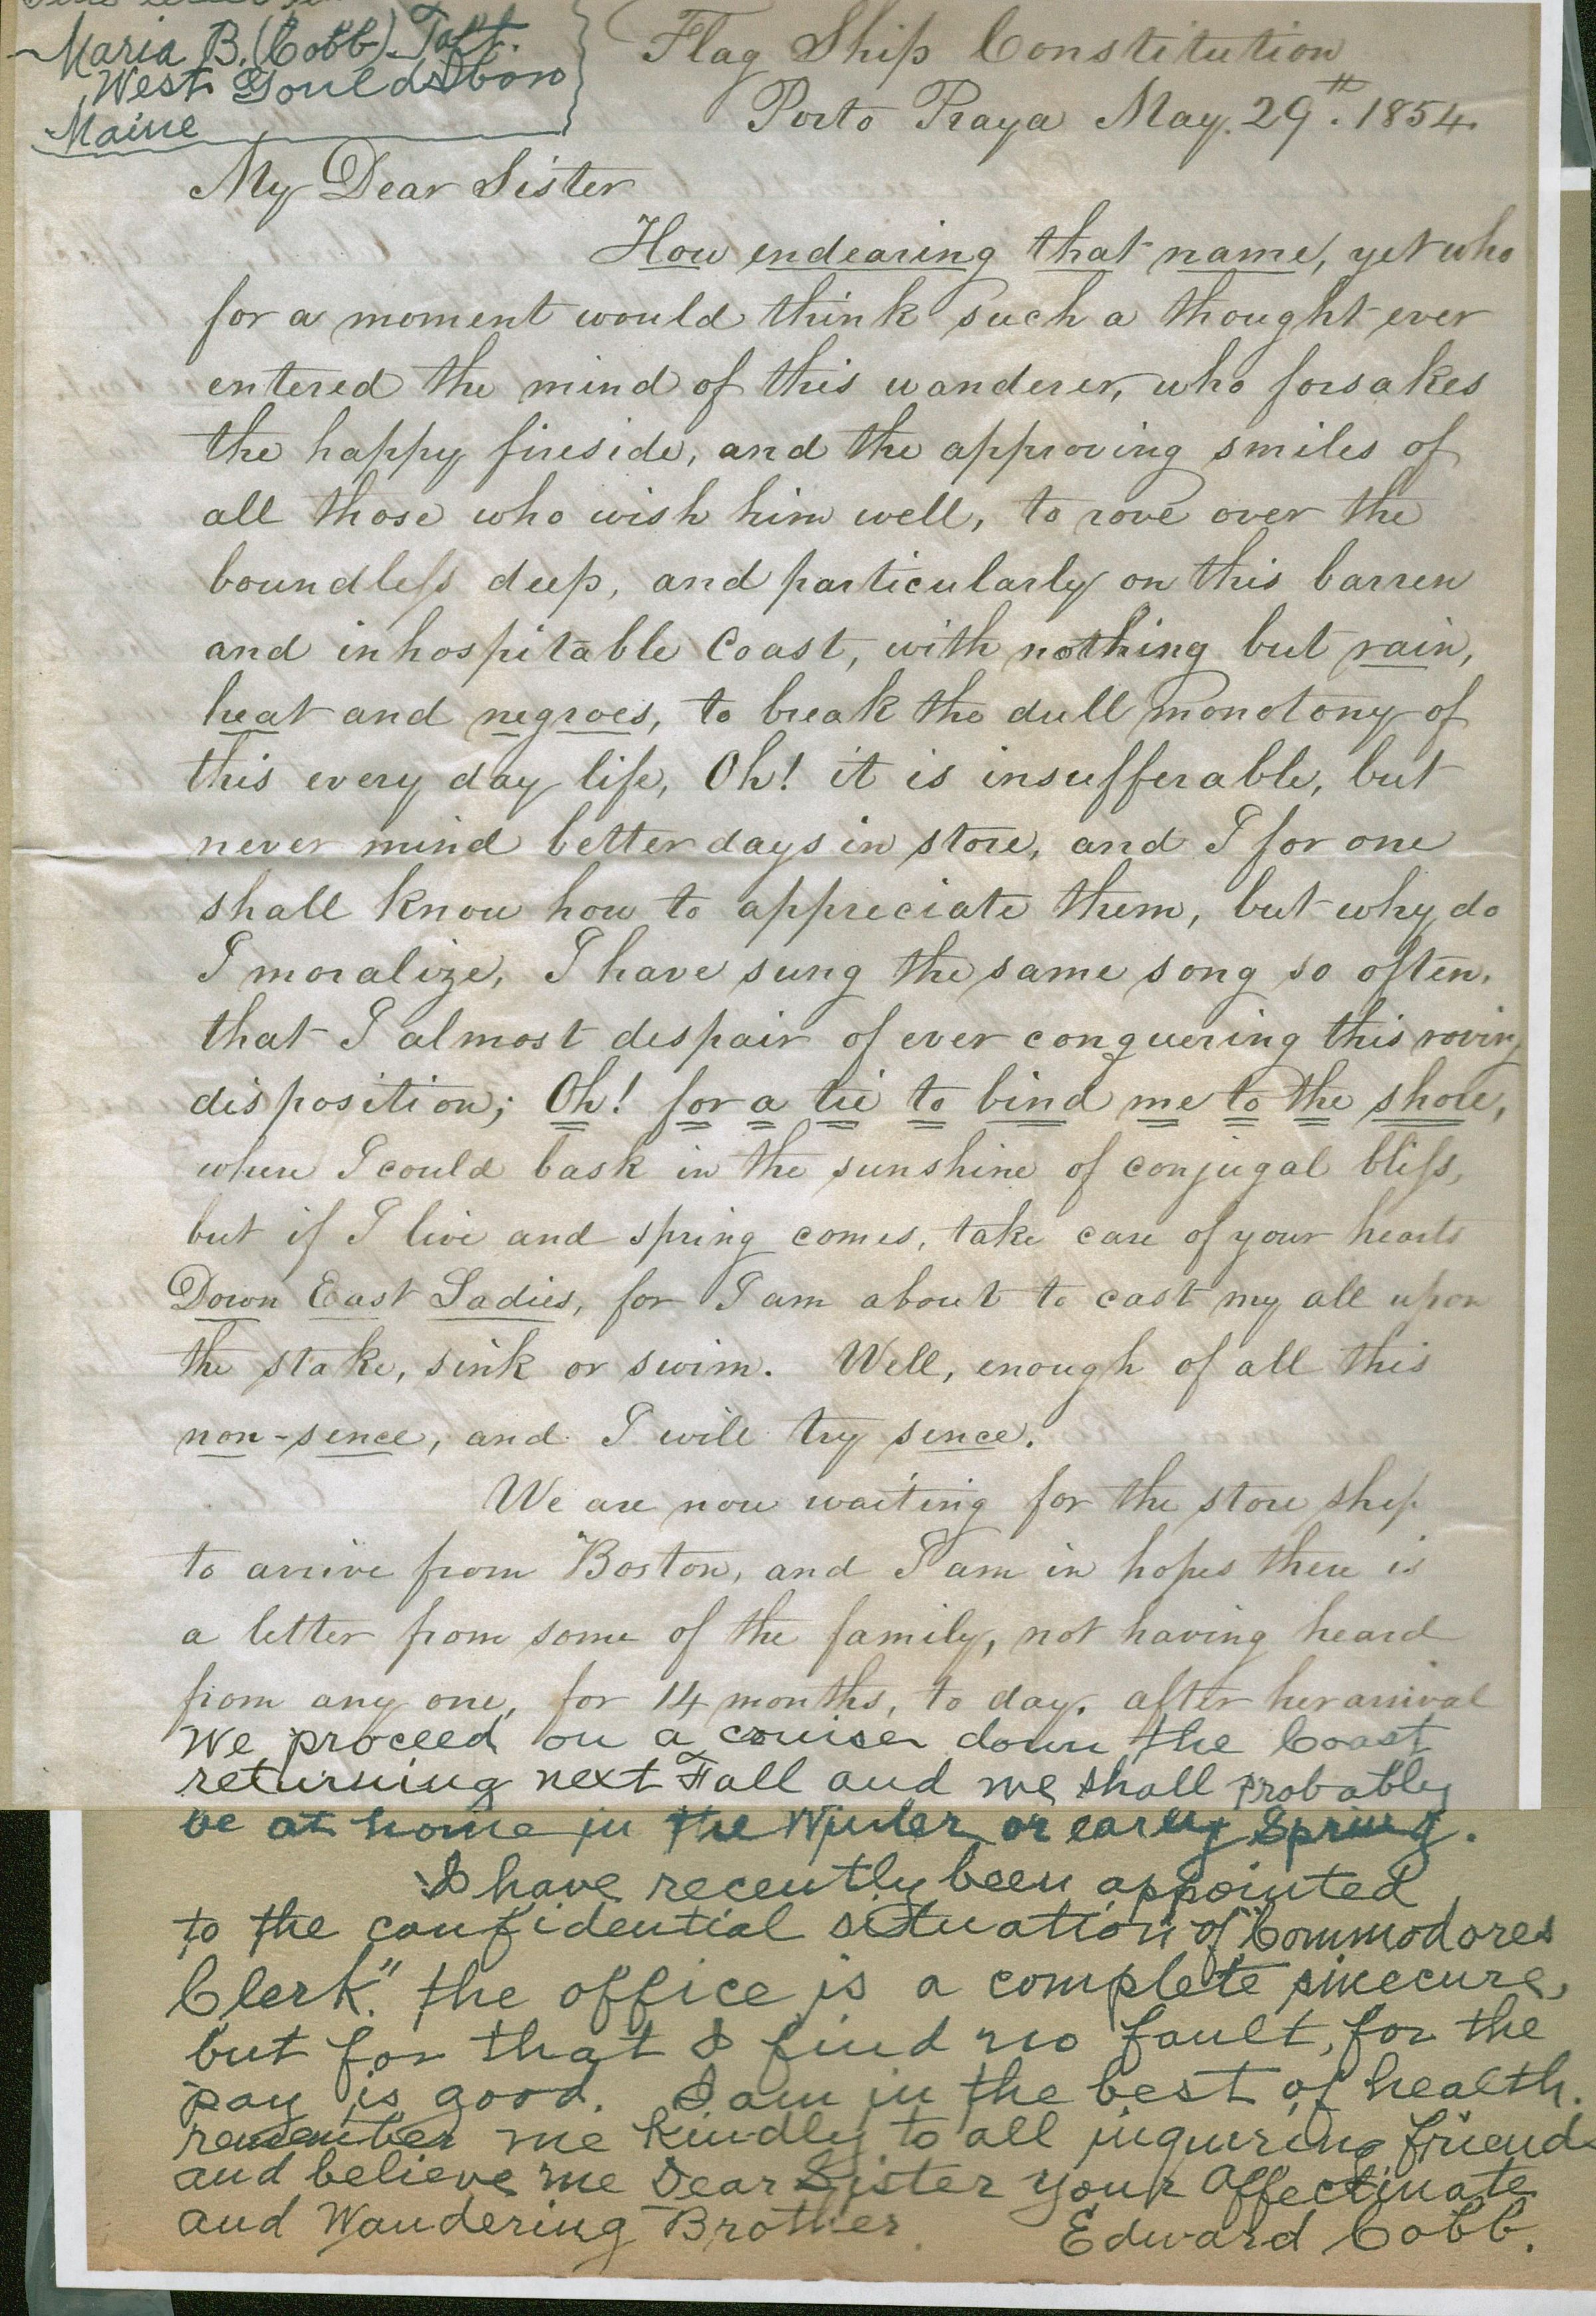 Maria B. (Cobb) Taft.
West Gouldsboro
Maine
Flag Ship Constitution
Porto Praya May. 29th. 1854.
My Dear Sister
How endearing that name, yet who
for a moment would think such a thought ever
entered the mind of this wanderer, who forsakes
the happy fireside, and the approving smiles of
all those who wish him well, to rove over the
boundless deep, and particularly on this barren
and inhospitable Coast, with nothing but rain,
heat and negroes, to break the dull monotony of
this every day life, Oh! it is insufferable, but
never mind better days in store, and I for one
shall know how to appreciate them, but why do
I moralize, I have sung the same song so often,
that I almost despair of ever conquering this roving
disposition; Oh! for a tie to bind me to the shore,
where I could bask in the sunshine of conjugal bliss,
but if I live and spring comes, take care of your hearts
Down East Ladies, for I am about to cast my all upon
the stake, sink or swim. Well, enough of all this
non-sence, and I will try sence.
We are now waiting for the store ship
to arrive from Boston, and I am in hopes there is
a letter from some of the family, not having heard
from any one, for 14 months, to day. after her arrival
We proceed on a cruise down the Coast
returning next Fall and we shall probably
be at home in the Winter or early Spring.
I have recently been appointed
to the confidential situation of "Commodores
Clerk." the office is a complete sinecure,
but for that I find no fault, for the
pay is good. I am in the best of health.
remember me kindly to all inquiring friends
and believe me Dear Sister your affectinate
and Wandering Brother
Edward Cobb.